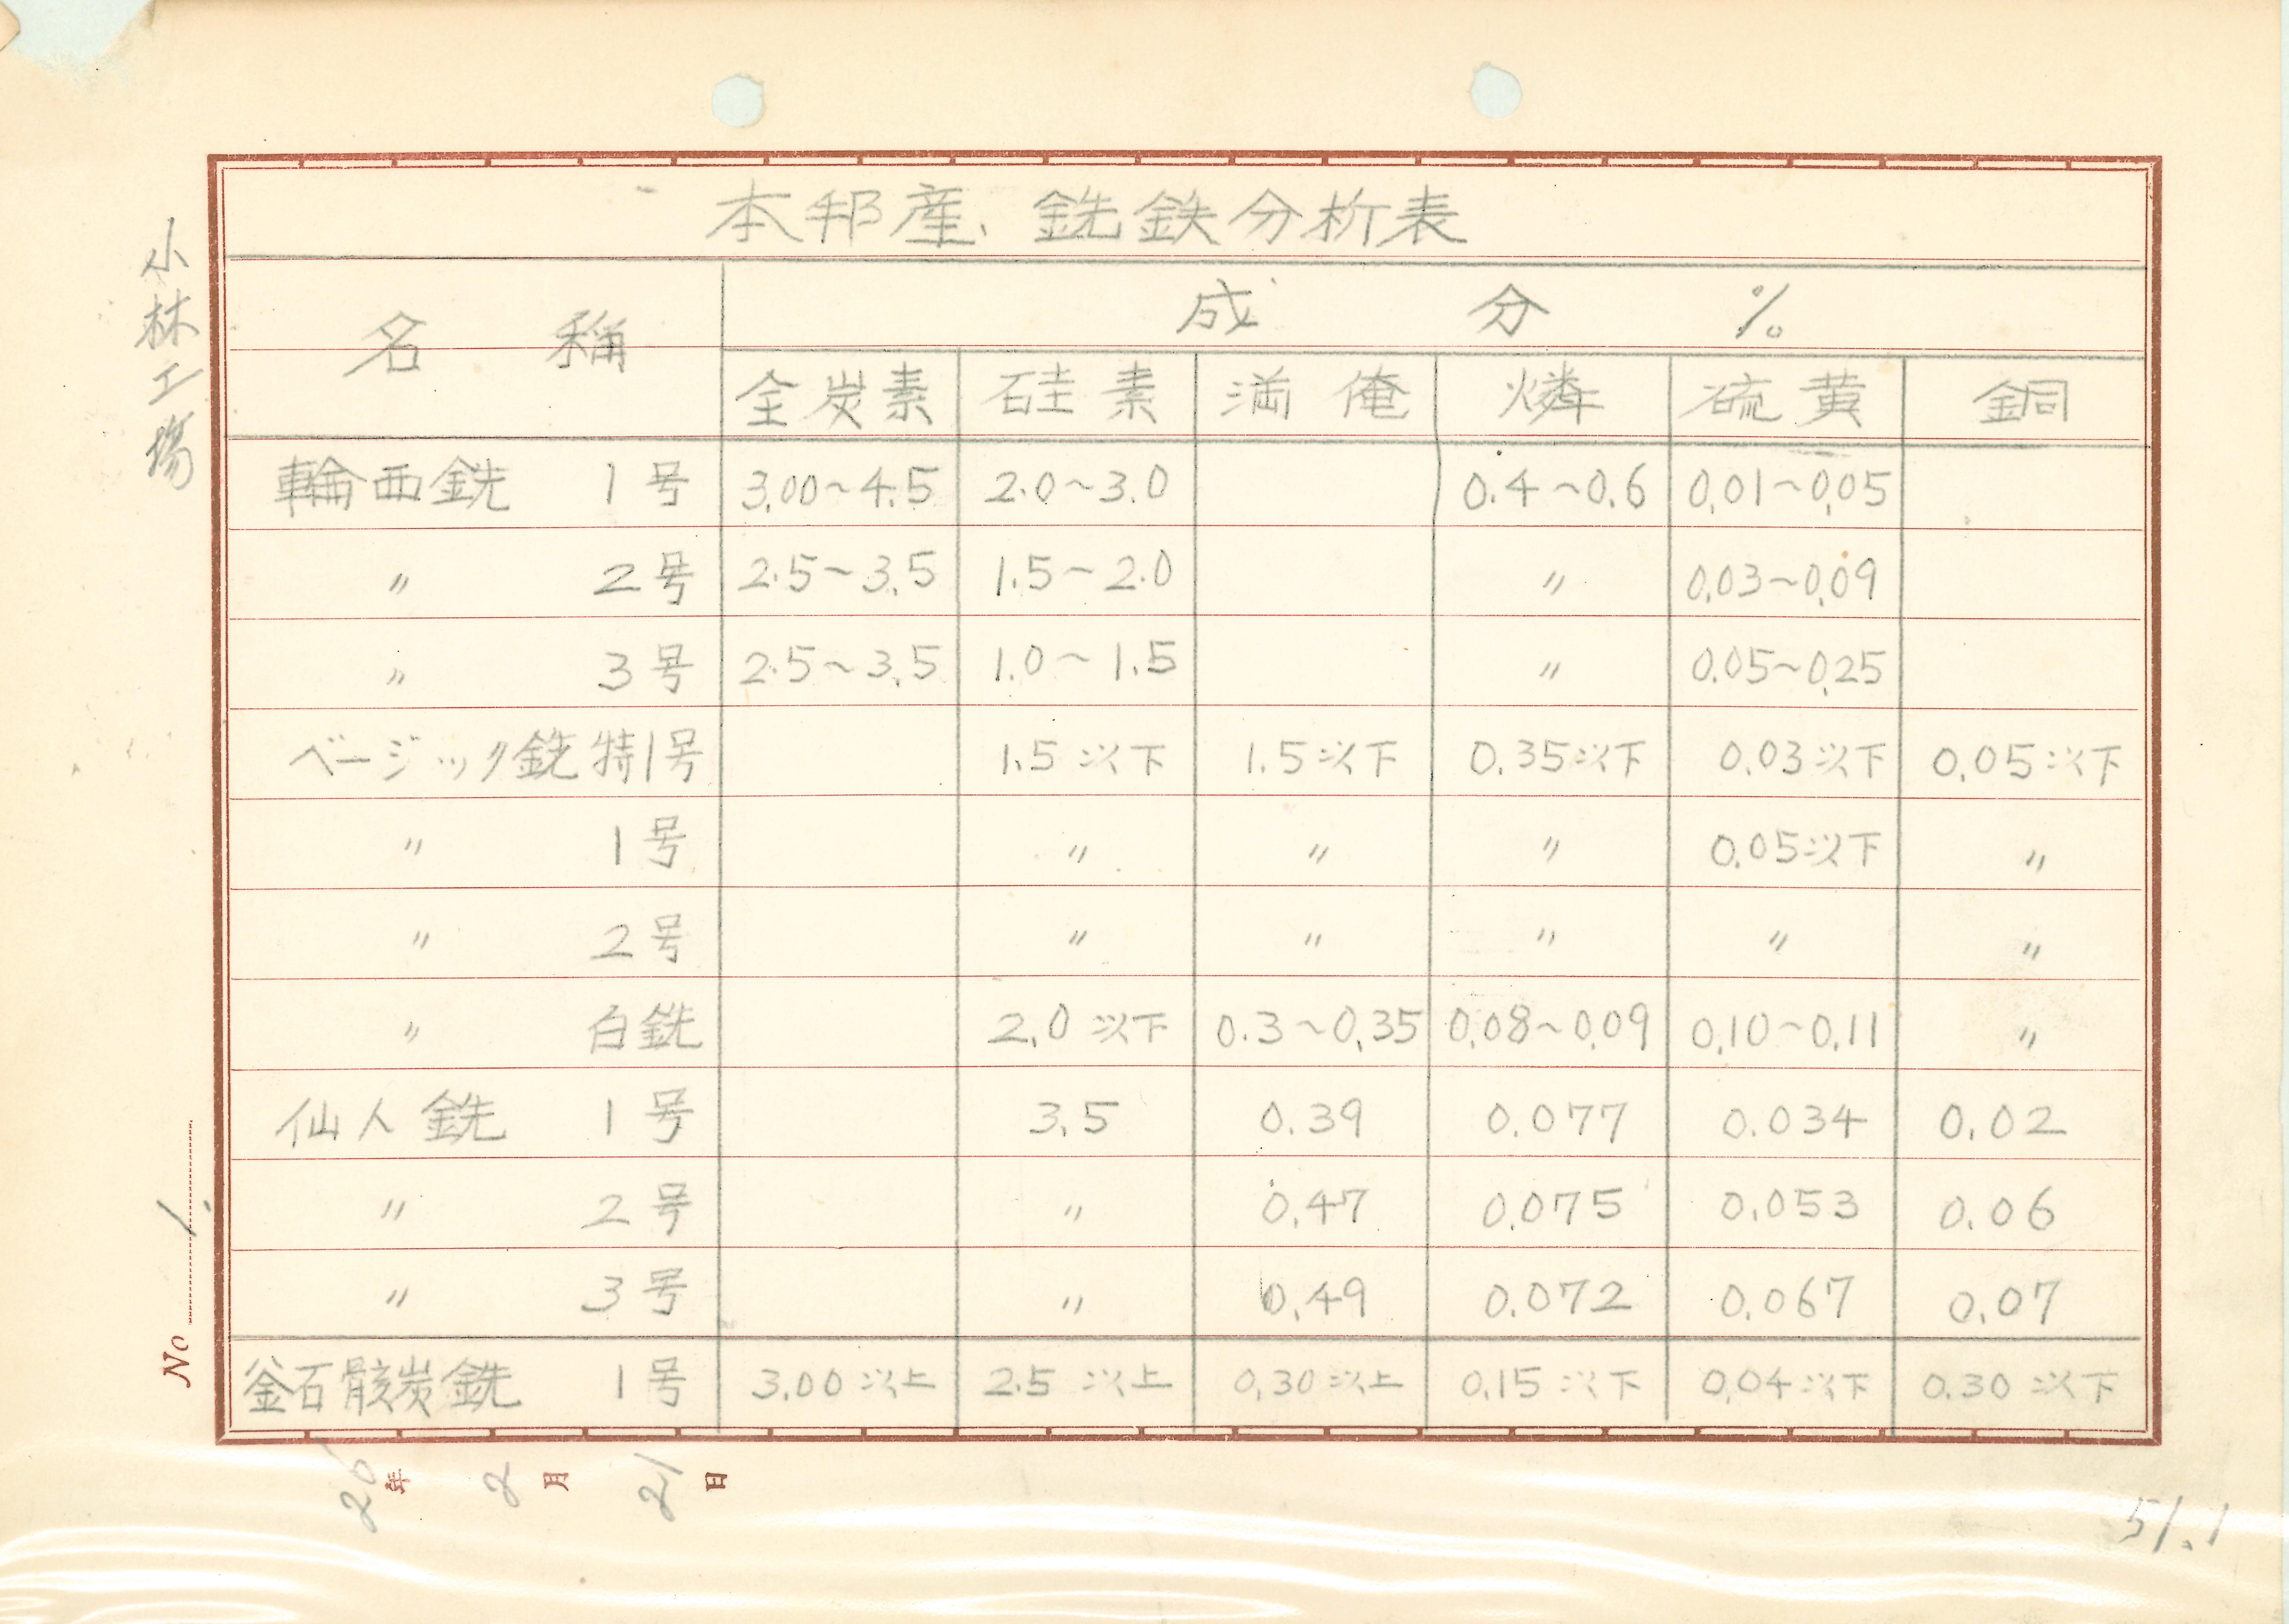 本邦産、銑鉄分析表
名 称 成 分 %
全炭素 硅素 満俺 燐 硫黄 銅
輪西銑 1号 3.00~4.5 2.0~3.0 0.4~0.6 0.01~0.05
〃 2号 2.5~3.5 1.5~2.0 〃 0.03~0.09
〃 3号 2.5~3.5 1.0~1.5 〃 0.05~0.25
ベージック銑特1号 1.5以下 1.5以下 0.35以下 0.03以下 0.05以下
〃 1号 〃 〃 〃 0.05以下 〃
〃 2号 〃 〃 〃 〃 〃
〃 白銑 2.0以下 0.3~0.35 0.08~0.09 0.10~0.11 〃
仙人銑 1号 3.5 0.39 0.077 0.034 0.02
〃 2号 〃 0.47 0.075 0.053 0.06
〃 3号 〃 0.49 0.072 0.067 0.07
釜石骸炭銑 1号 3.00以上 2.5以上 0.30以上 0.15以下 0.04以下 0.30以下
小林工場
No 1.
26年 2月 21日
51.1